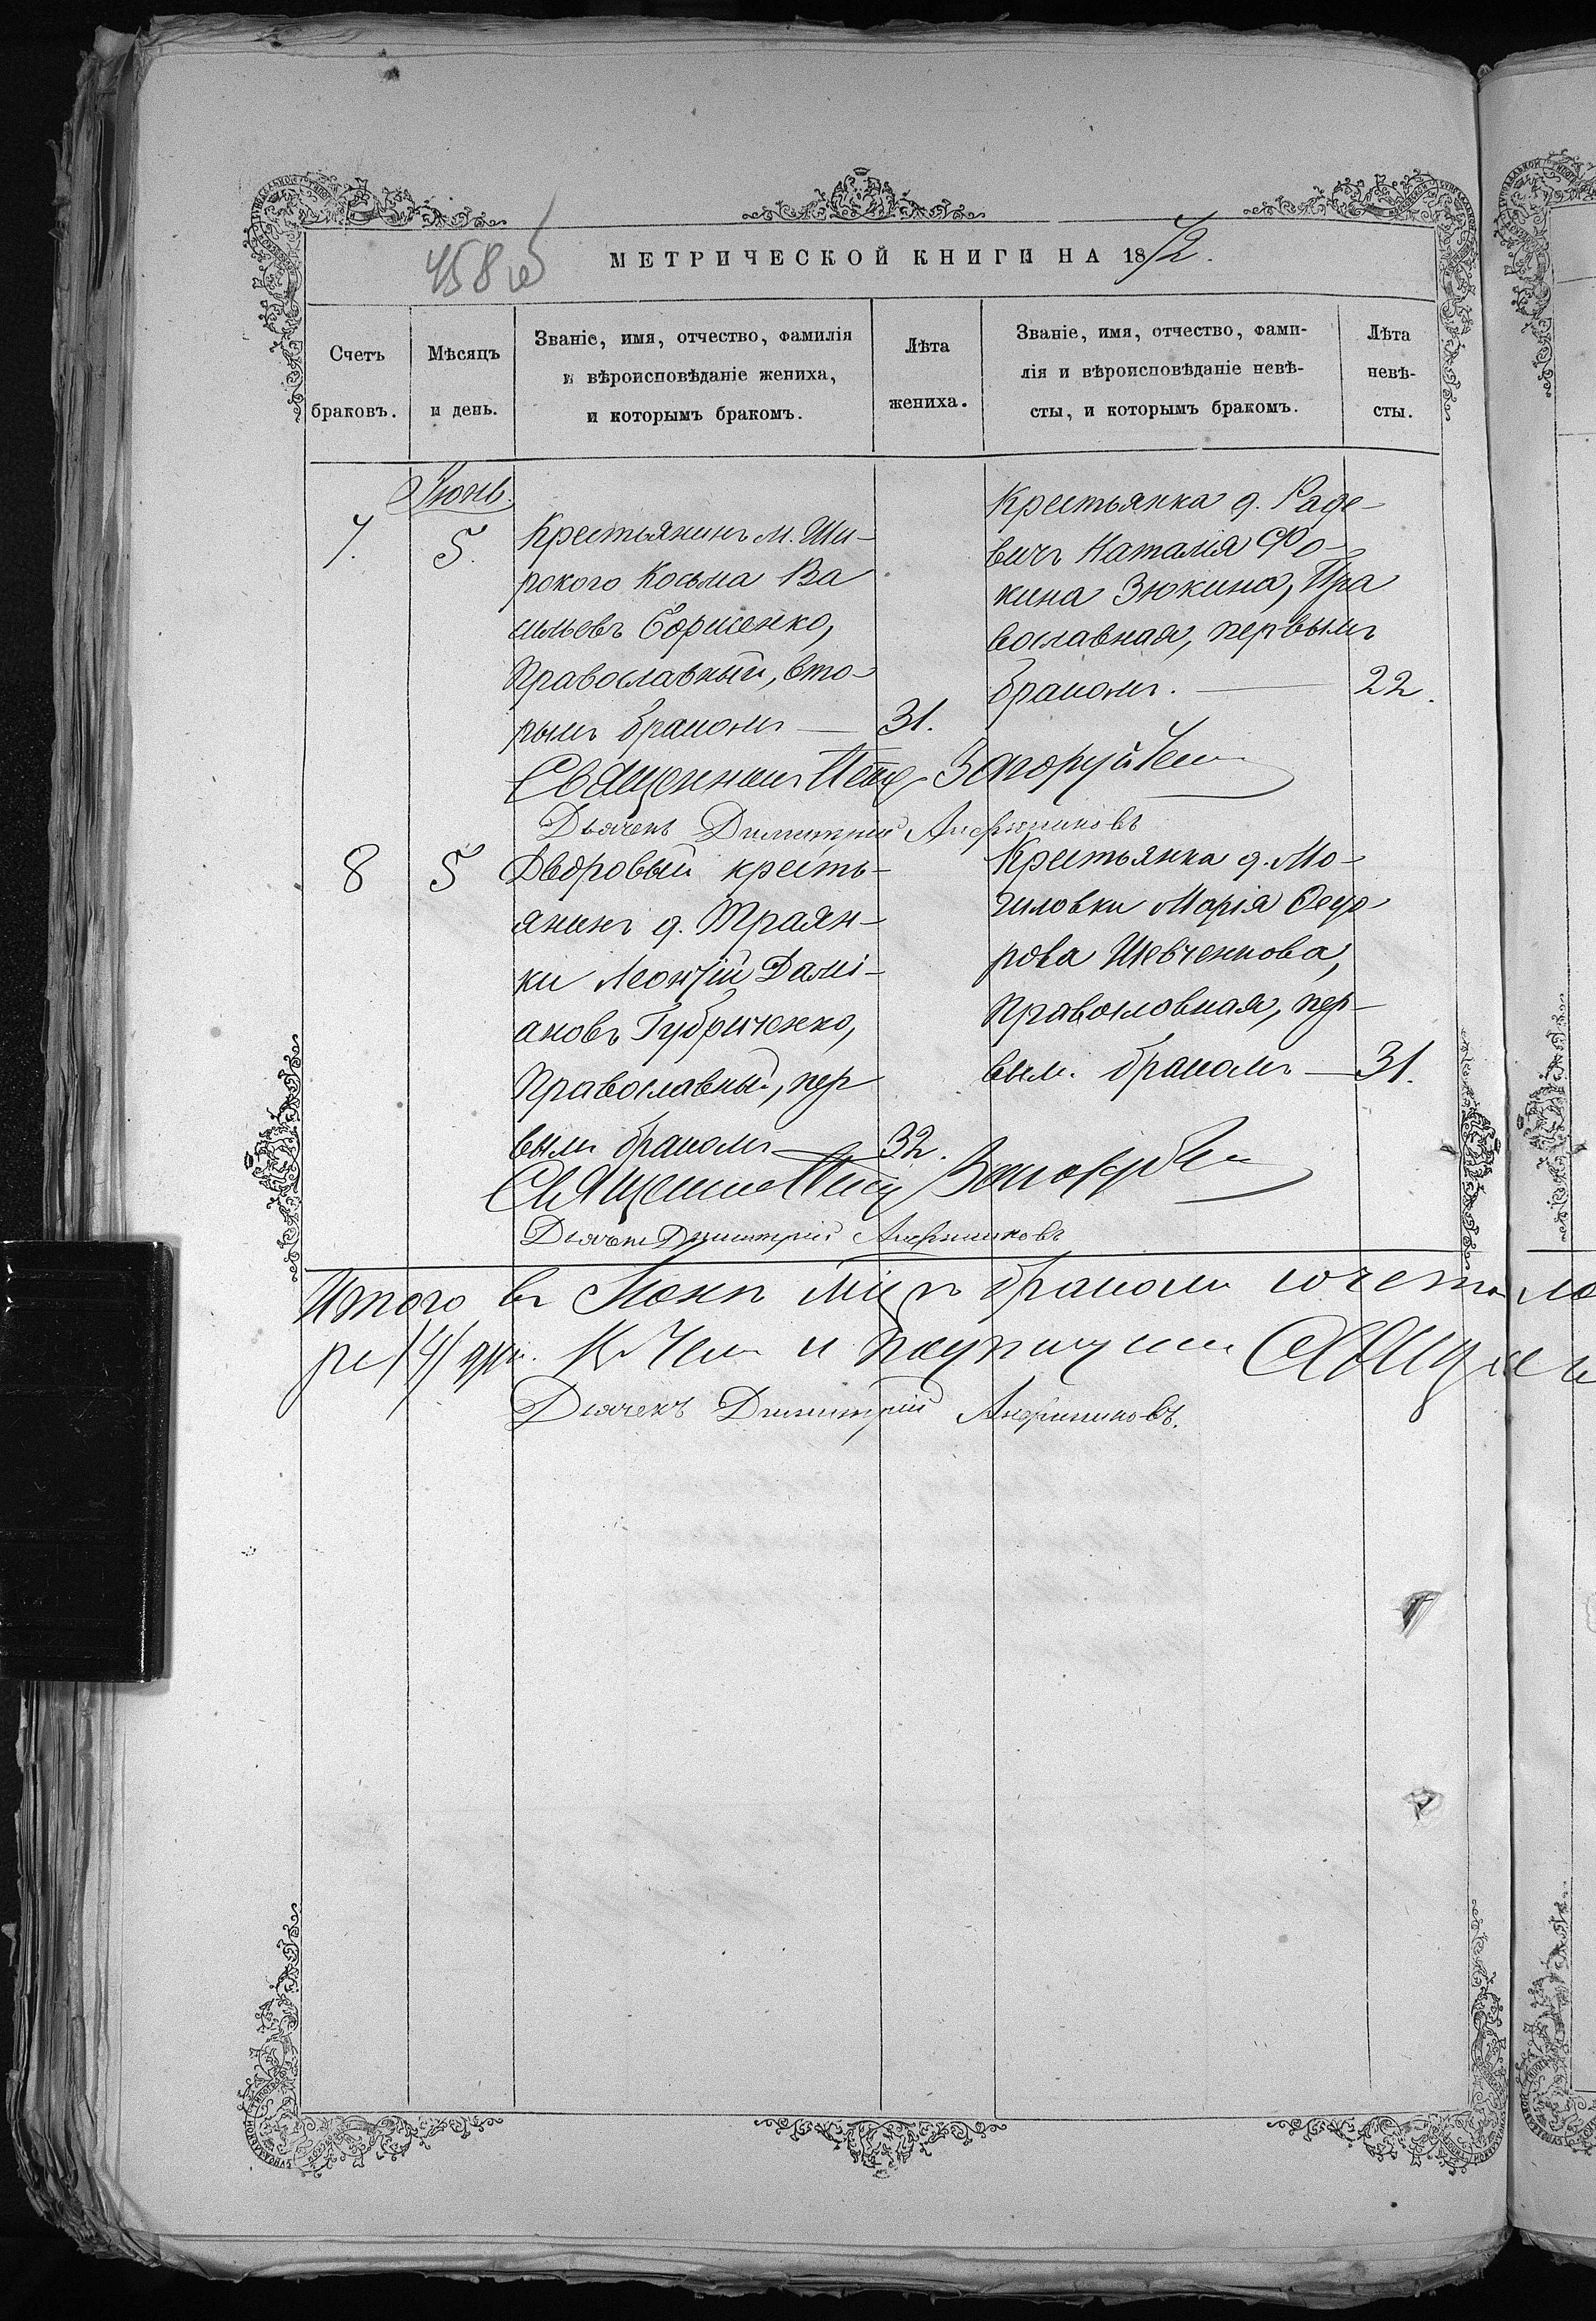 458 об
МЕТРИЧЕСКОЙ КНИГИ НА 1872.
Счетъ браковъ.
Мѣсяцъ и день.
Званіе, имя, отчество, фамилія
и вѣроисповѣданіе жениха,
и которымъ бракомъ.
Лѣта
жениха.
Званіе, имя, отчество, фами-
лія и вѣроисповѣданіе невѣ-
сты, и которымъ бракомъ.
Лѣта
невѣ-
сты.
Іюнь.
7.
5.
Крестьянинъ м. Ши-
рокого Косьма Ва
сильевъ Борисенко,
Православный, вто-
рымъ бракомъ — 31.
Крестьянка д. Раде-
вичъ Наталія Фо-
кина Зюкина, Пра
вославная, первымъ
бракомъ. — 22.
Священникъ Петръ Загоруйко
Дьячекъ Димитрій
8
5
Дворовый кресть-
янинъ д. Траян-
ки Леонтій Дамі-
ановъ Губриченко,
Православный, пер
вымъ бракомъ 32.
Крестьянка д. Мо-
гиловки Марія Ѳедо
рова Шевченкова,
Православная, пер-
вым. бракомъ — 31.
Священникъ Петръ
Дьячекъ Димитрій
Итого въ Іюнѣ мцѣ бракомъ сочетало
Дьячекъ Димитрій